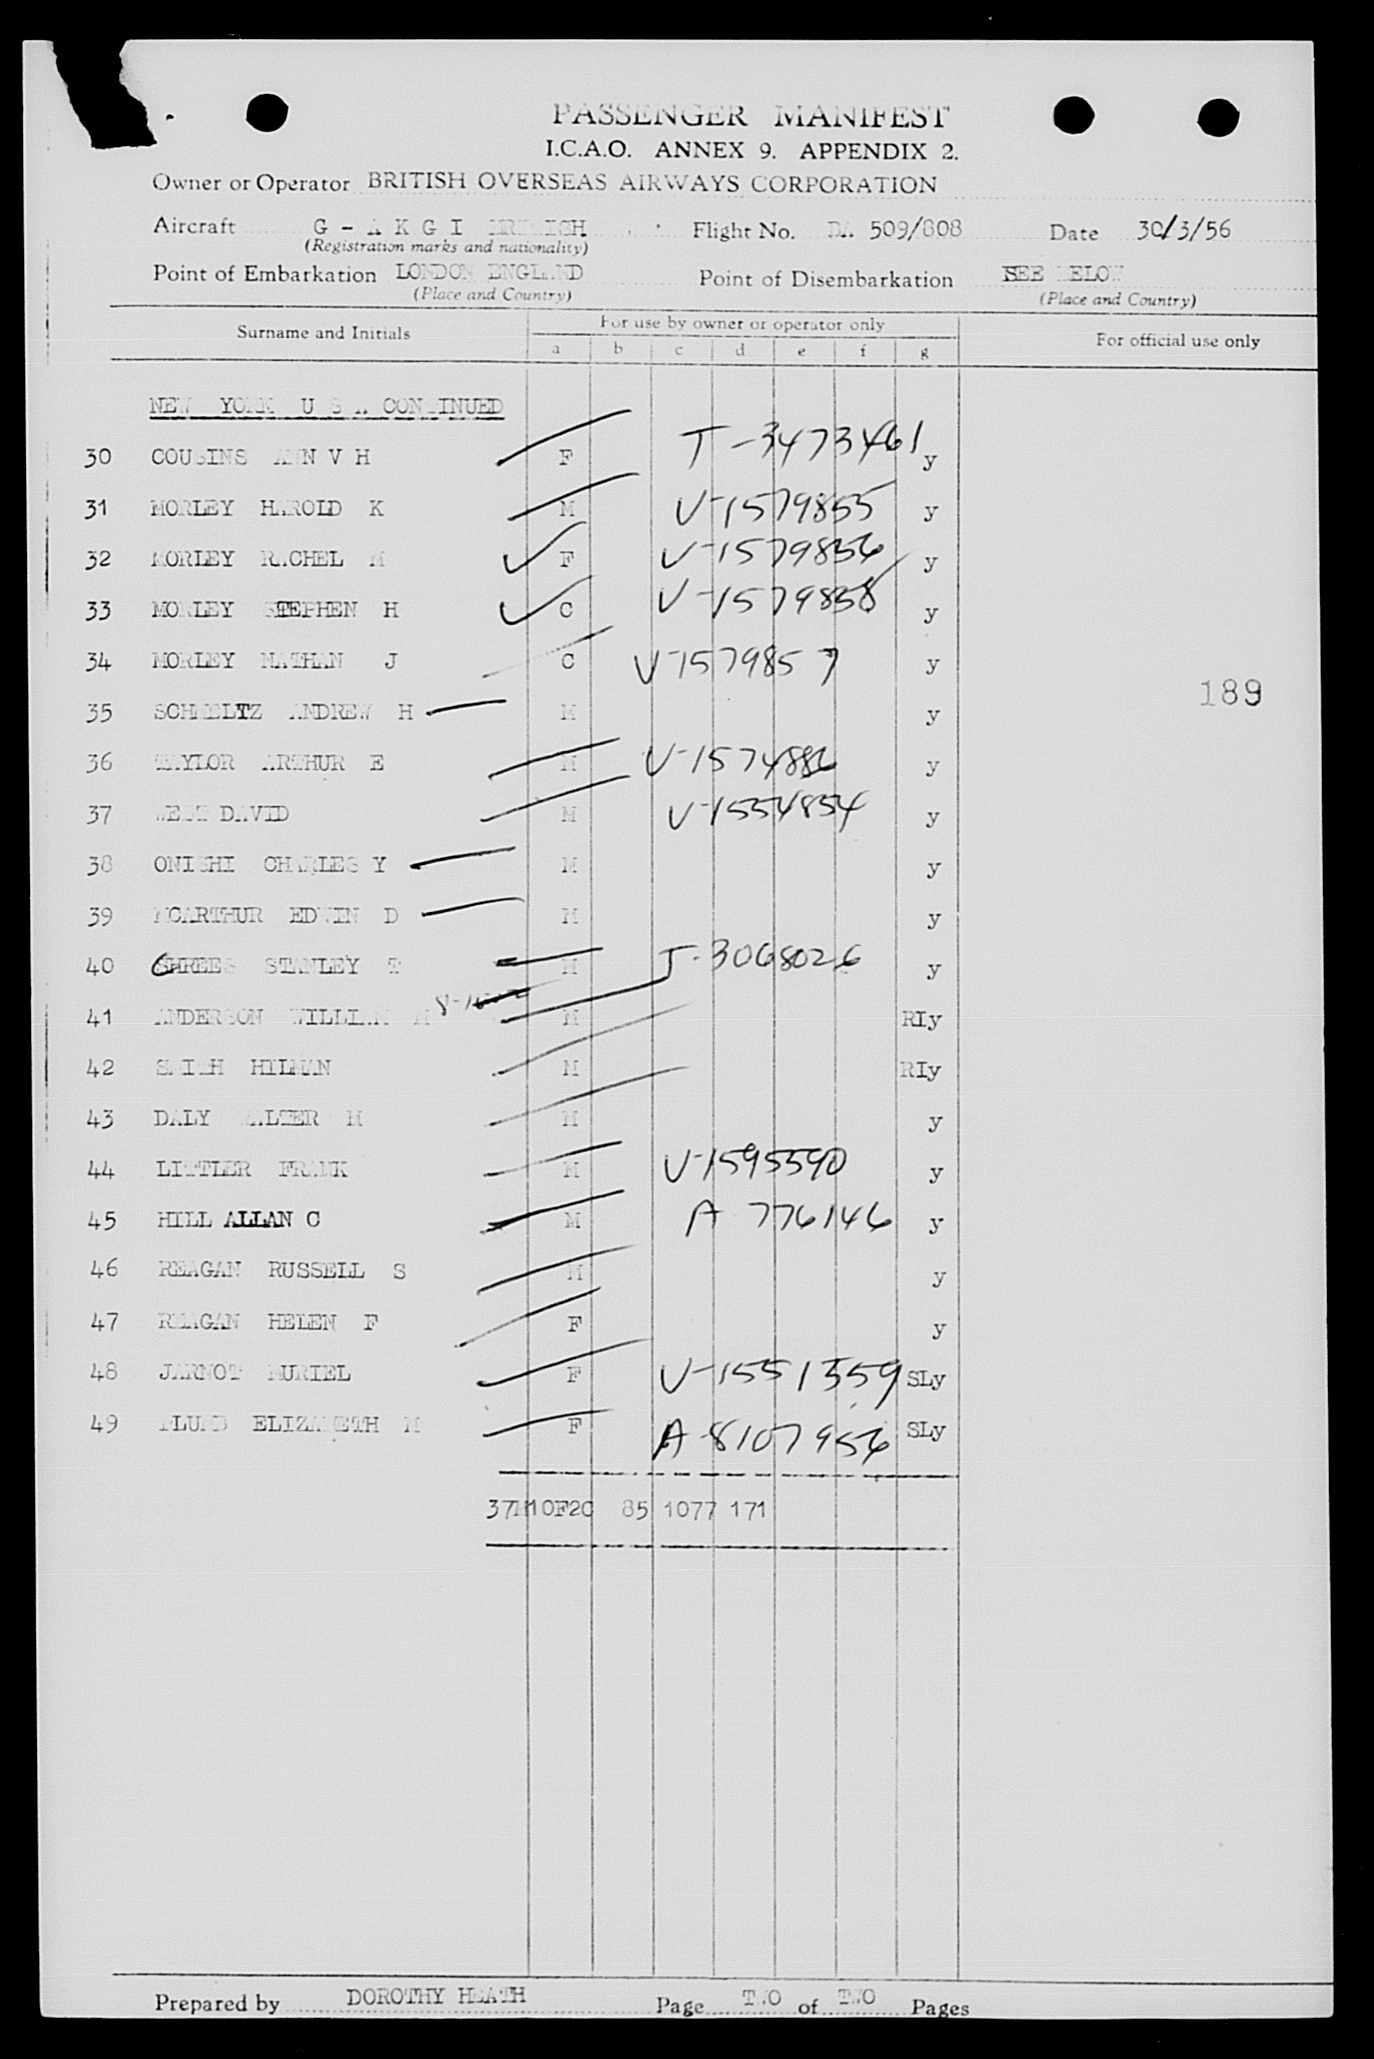 PASSENGER MANIFEST
I.C.A.O. ANNEX 9. APPENDIX 2.
Owner or Operator BRITISH OVERSEAS AIRWAYS CORPORATION
Aircraft G - A K G I Flight No. BA 509/808 Date 30/3/56
(Registration marks and nationality)
Point of Embarkation LONDON ENGLAND Point of Disembarkation SEE BELOW
(Place and Country) (Place and Country)
Surname and Initials For use by owner or operator only For official use only
a b c d e f g
NEW YORK U S A CONTINUED
30 COUSINS ANN V H F T-3473461 y
31 MORLEY HAROLD K M V-1579855 y
32 MORLEY RACHEL M F V-1579856 y
33 MORLEY STEPHEN H C V-1579858 y
34 MORLEY NATHAN J C V-1579857 y
189
35 SCHMELTZ ANDREW H M y
36 TAYLOR ARTHUR E M V-1574886 y
37 WEST DAVID M V-1554854 y
38 ONISHI CHARLES Y M y
39 MCARTHUR EDWIN D M y
40 GHREES STANLEY T M T-3068026 y
41 ANDERSON WILLIAM M M RIy
42 SMITH HILMAN M RIy
43 DALY WALTER H M y
44 LITTLER FRANK M V-1595590 y
45 HILL ALLAN C M A 776146 y
46 REAGAN RUSSELL S M y
47 REAGAN HELEN F F y
48 JARNOT MURIEL F V-1551359 SLy
49 PLUMB ELIZABETH M F A-8107956 SLy
37M10F2C 85 1077 171
Prepared by DOROTHY HEATH Page TWO of TWO Pages